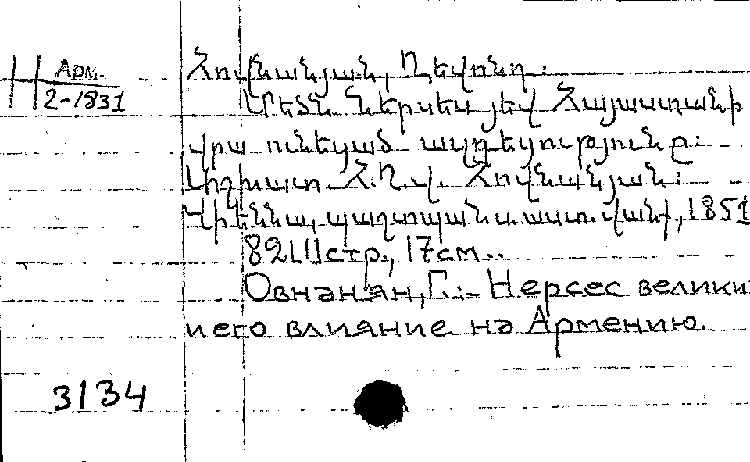 Арм.
2-1831
Հովնանյան, Ղեվոնդ.
Մեծն Ներսես յեվ Հայաստանի
վրա ունեցած ազդեցությունը:
Աշխատ Հ.Ղ.վ. Հովնանյան:
Վիեննա, պաշտպան ս. աստ. վանք, 1851
82 [1] стр., 17см..
Овнанян, Г.:- Нерсес велики
и его влияние на Армению.
3134